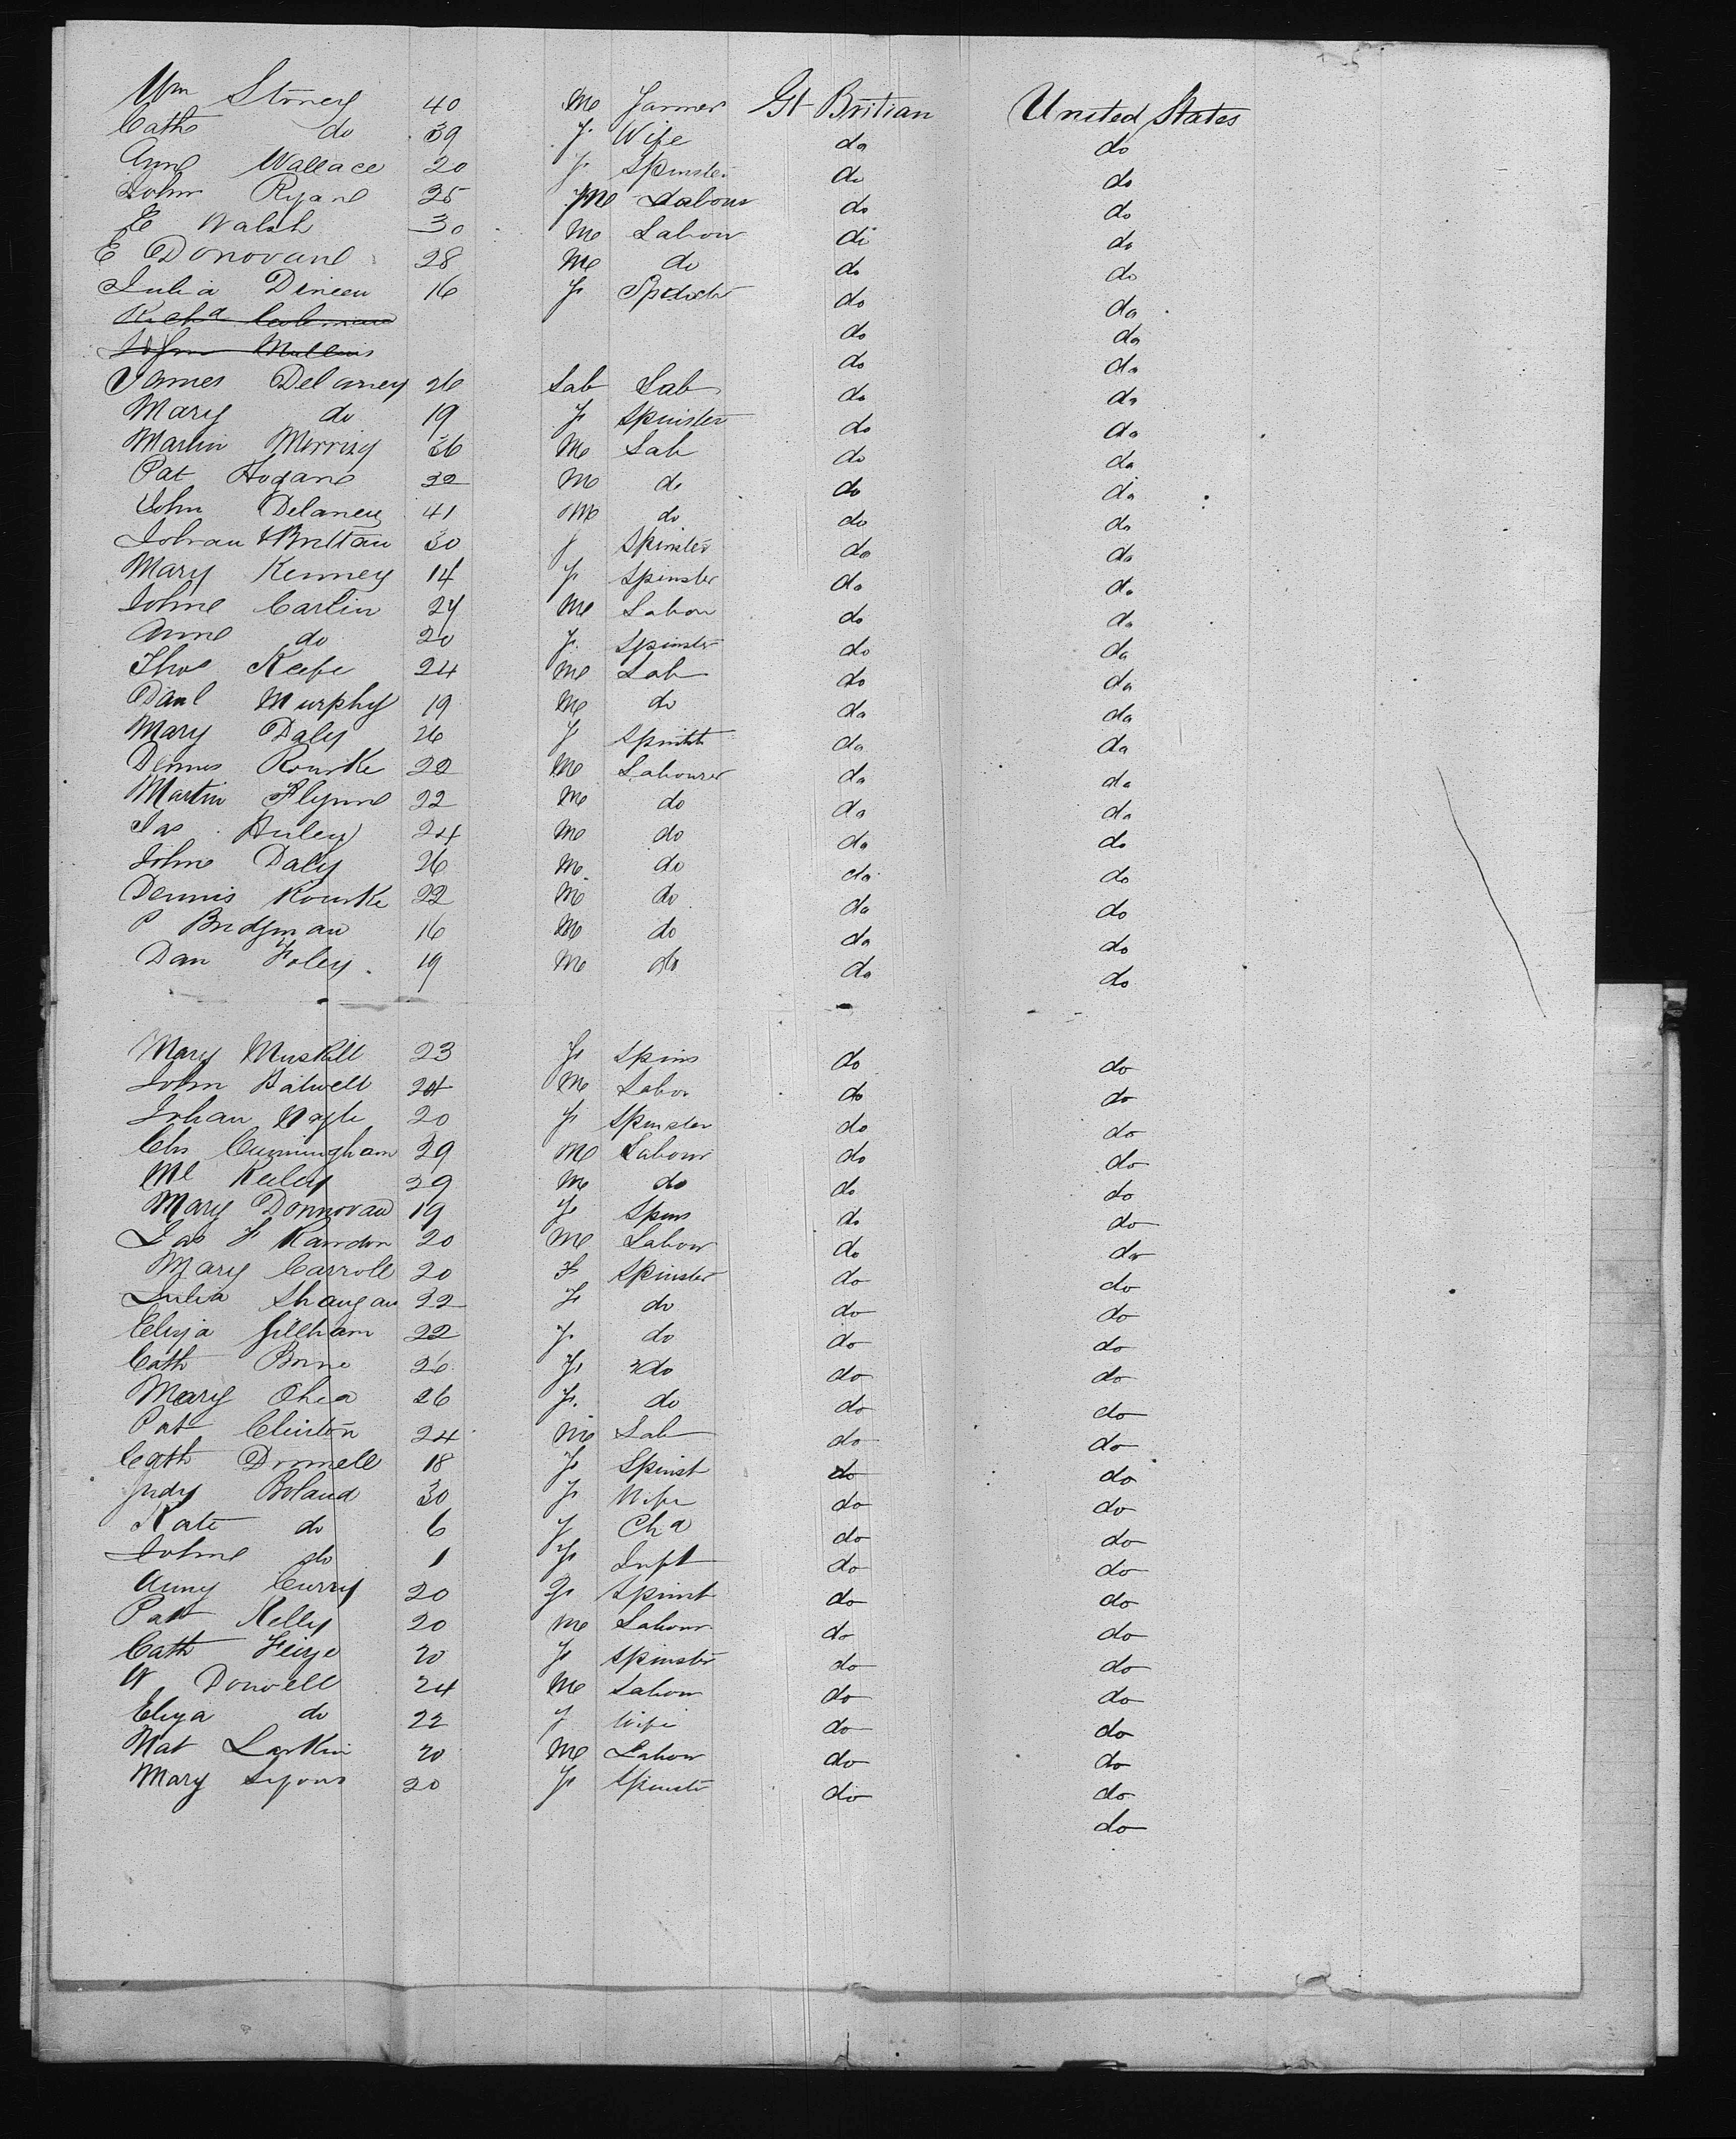 Wm Stoney 40 Me Farmer Gt Britian United States
Cath do 39 F Wife do do
Anne Wallace 20 F Spinster do do
John Ryane 25 Me Labour do do
E Walsh 30 Me Labour do do
E Donovane 28 Me do do do
Julia Dineen 16 F do do
Richd do do
John Mullins do do
James Delaney 26 Lab Lab do do
Mary do 19 F Spinster do do
Martin 36 Me Lab do do
Pat Hogane 32 Me do do do
John Delaney 41 Me do do do
30 F Spinster do do
Mary Kenney 14 F Spinster do do
Johne Carlin 24 Me Labour do do
Anne do 20 F Spinster do do
Thos Keefe 24 Me Lab do do
Danl Murphy 19 Me do do do
Mary Daly 26 F do do
Dennis Rourke 22 Me Labourer do do
Martin Flynne 22 Me do do do
Jas 24 Me do do do
Johne Daly 26 Me do do do
Dennis Rourke 22 Me do do do
P Bridgman 16 Me do do do
Dan Foley 19 Me do do do
Mary 23 F Spins do do
John 24 Me Labor do do
Johan Nagle 20 F Spinster do do
Chs Cunningham 29 Me Labour do do
Ml 29 Me do do do
Mary Donnovan 19 F Spins do do
Jas F 20 Me Labour do do
Mary Carroll 20 F Spinster do do
Julia 22 F do do do
Eliza Gillham 22 F do do do
Cath 26 F do do do
Mary Ohea 26 F do do do
Pat Clinton 24 Me Lab do do
Cath Donnell 18 F Spinst do do
Judy Boland 30 F Wife do do
Kate do 6 F Chd do do
Johne do 1 F Inft do do
Anny Curry 20 F Spinst do do
Patt Kelly 20 Me Labour do do
Cath 20 F Spinster do do
W Donnell 24 Me Labour do do
Eliza do 22 F Wife do do
Mat Larkin 20 Me Labour do do
Mary Lyons 20 F Spinster do do
do